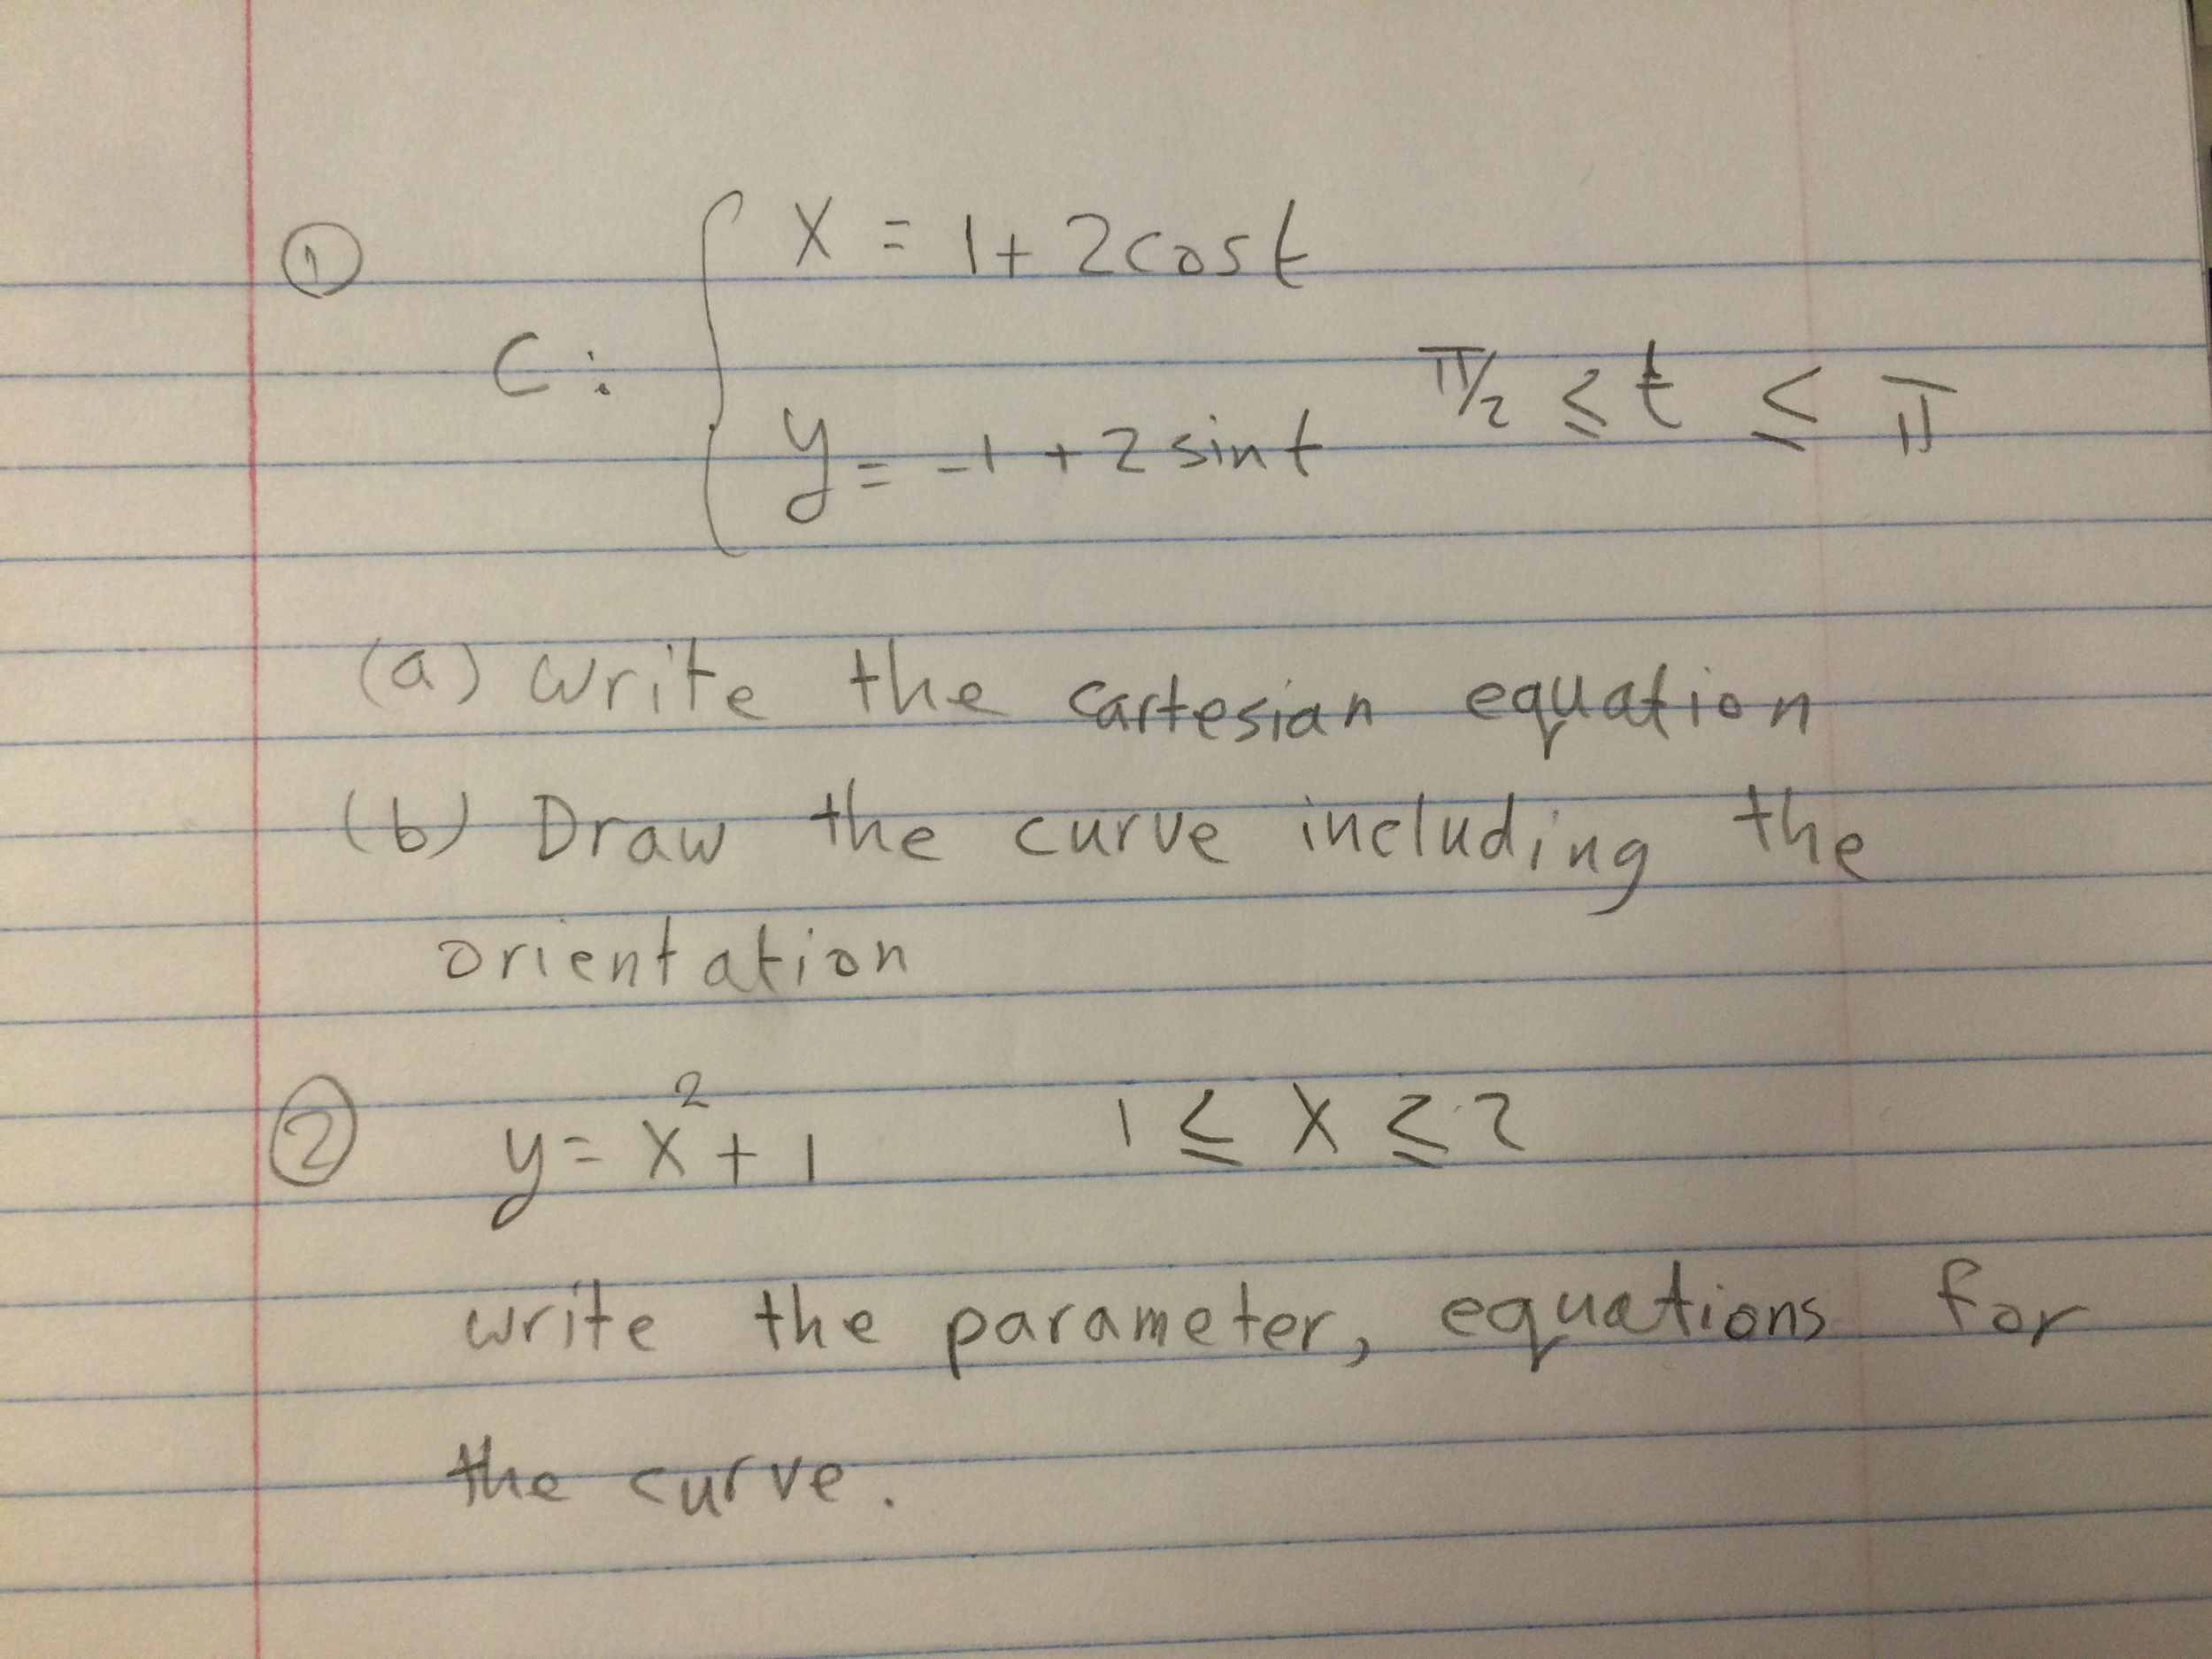 ① x = 1 + 2cost
C:
y = -1 + 2 sint π/2 ≤ t ≤ π
(a) write the cartesian equation
(b) Draw the curve including the
orientation
② y = x² + 1 1 ≤ x ≤ 2
write the parameter, equations for
the curve.